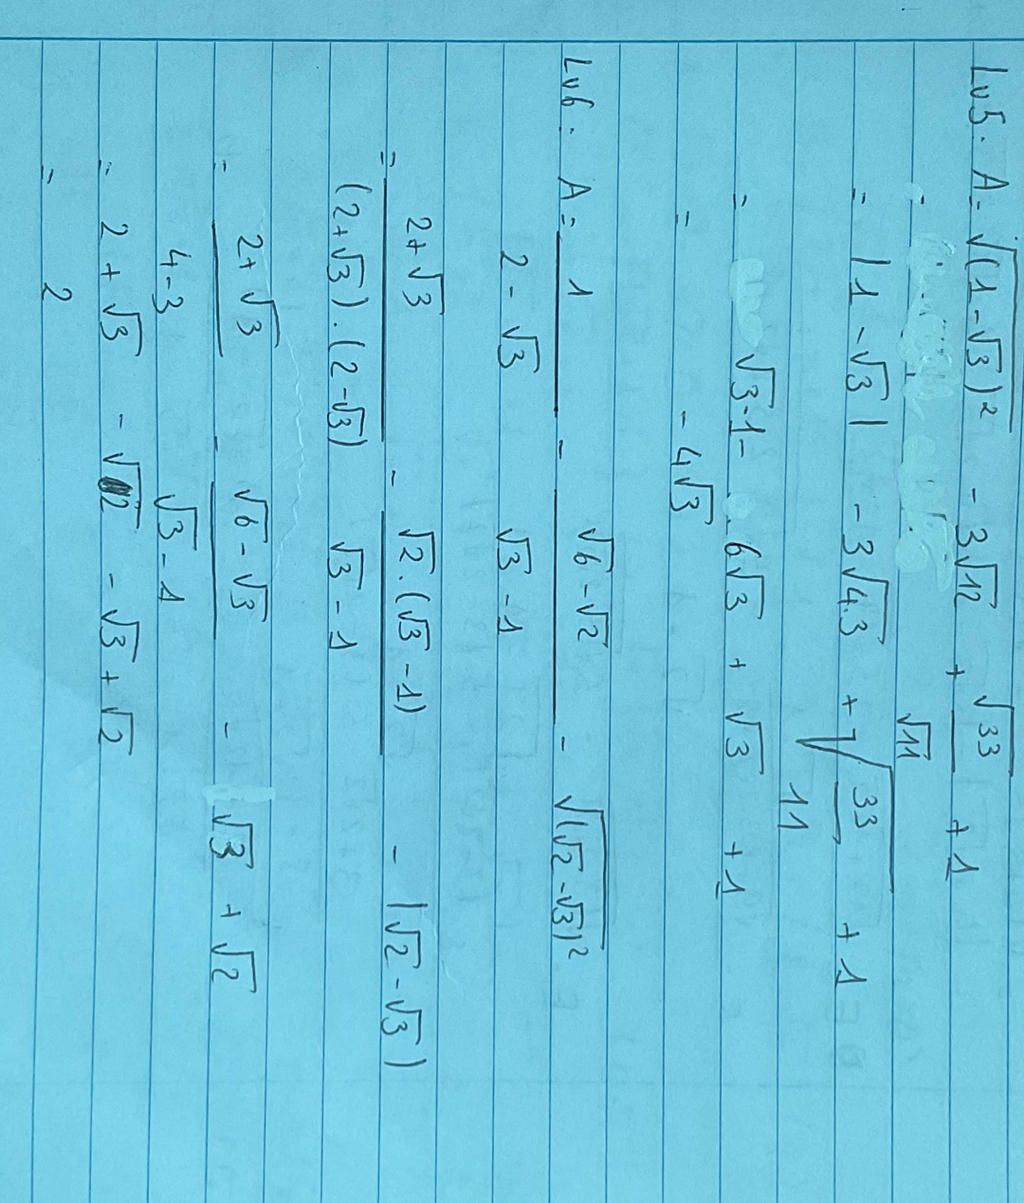 Lv5. A = √(1-√3)² - 3√12 + √33/√11 + 1
= |1-√3| - 3√4.3 + √33/11 + 1
= √3-1- 6√3 + √3 + 1
= - 4√3
Lv6. A = 1/2-√3 - √6-√2/√3-1 - √(√2-√3)²
= 2+√3/(2+√3).(2-√3) - √2.(√3-1)/√3-1 - |√2-√3)
= 2+√3/4-3 - √6-√3/√3-1 - √3 + √2
= 2 + √3 - √2 - √3 + √2
= 2